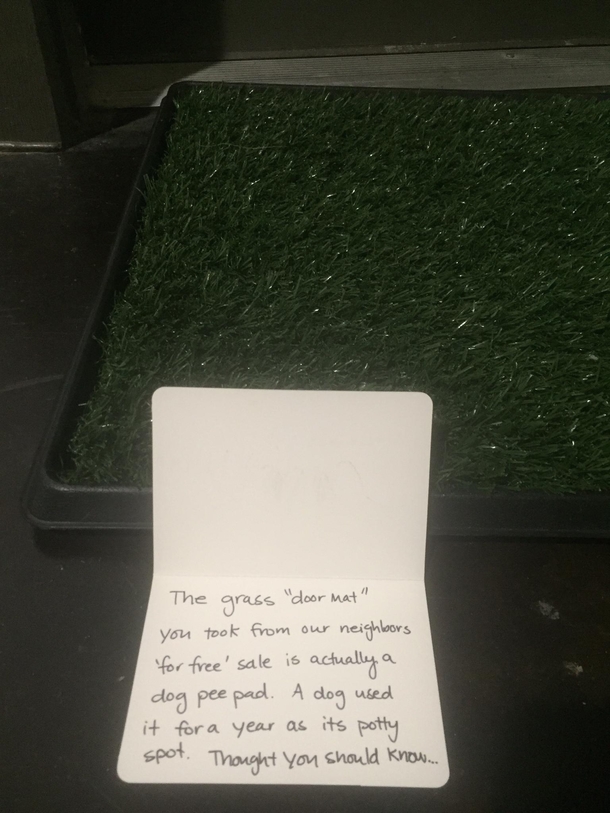 The grass "door mat"
you took from our neighbors
'for free' sale is actually a
dog pee pad. A dog used
it for a year as its potty
spot. Thought you should know...